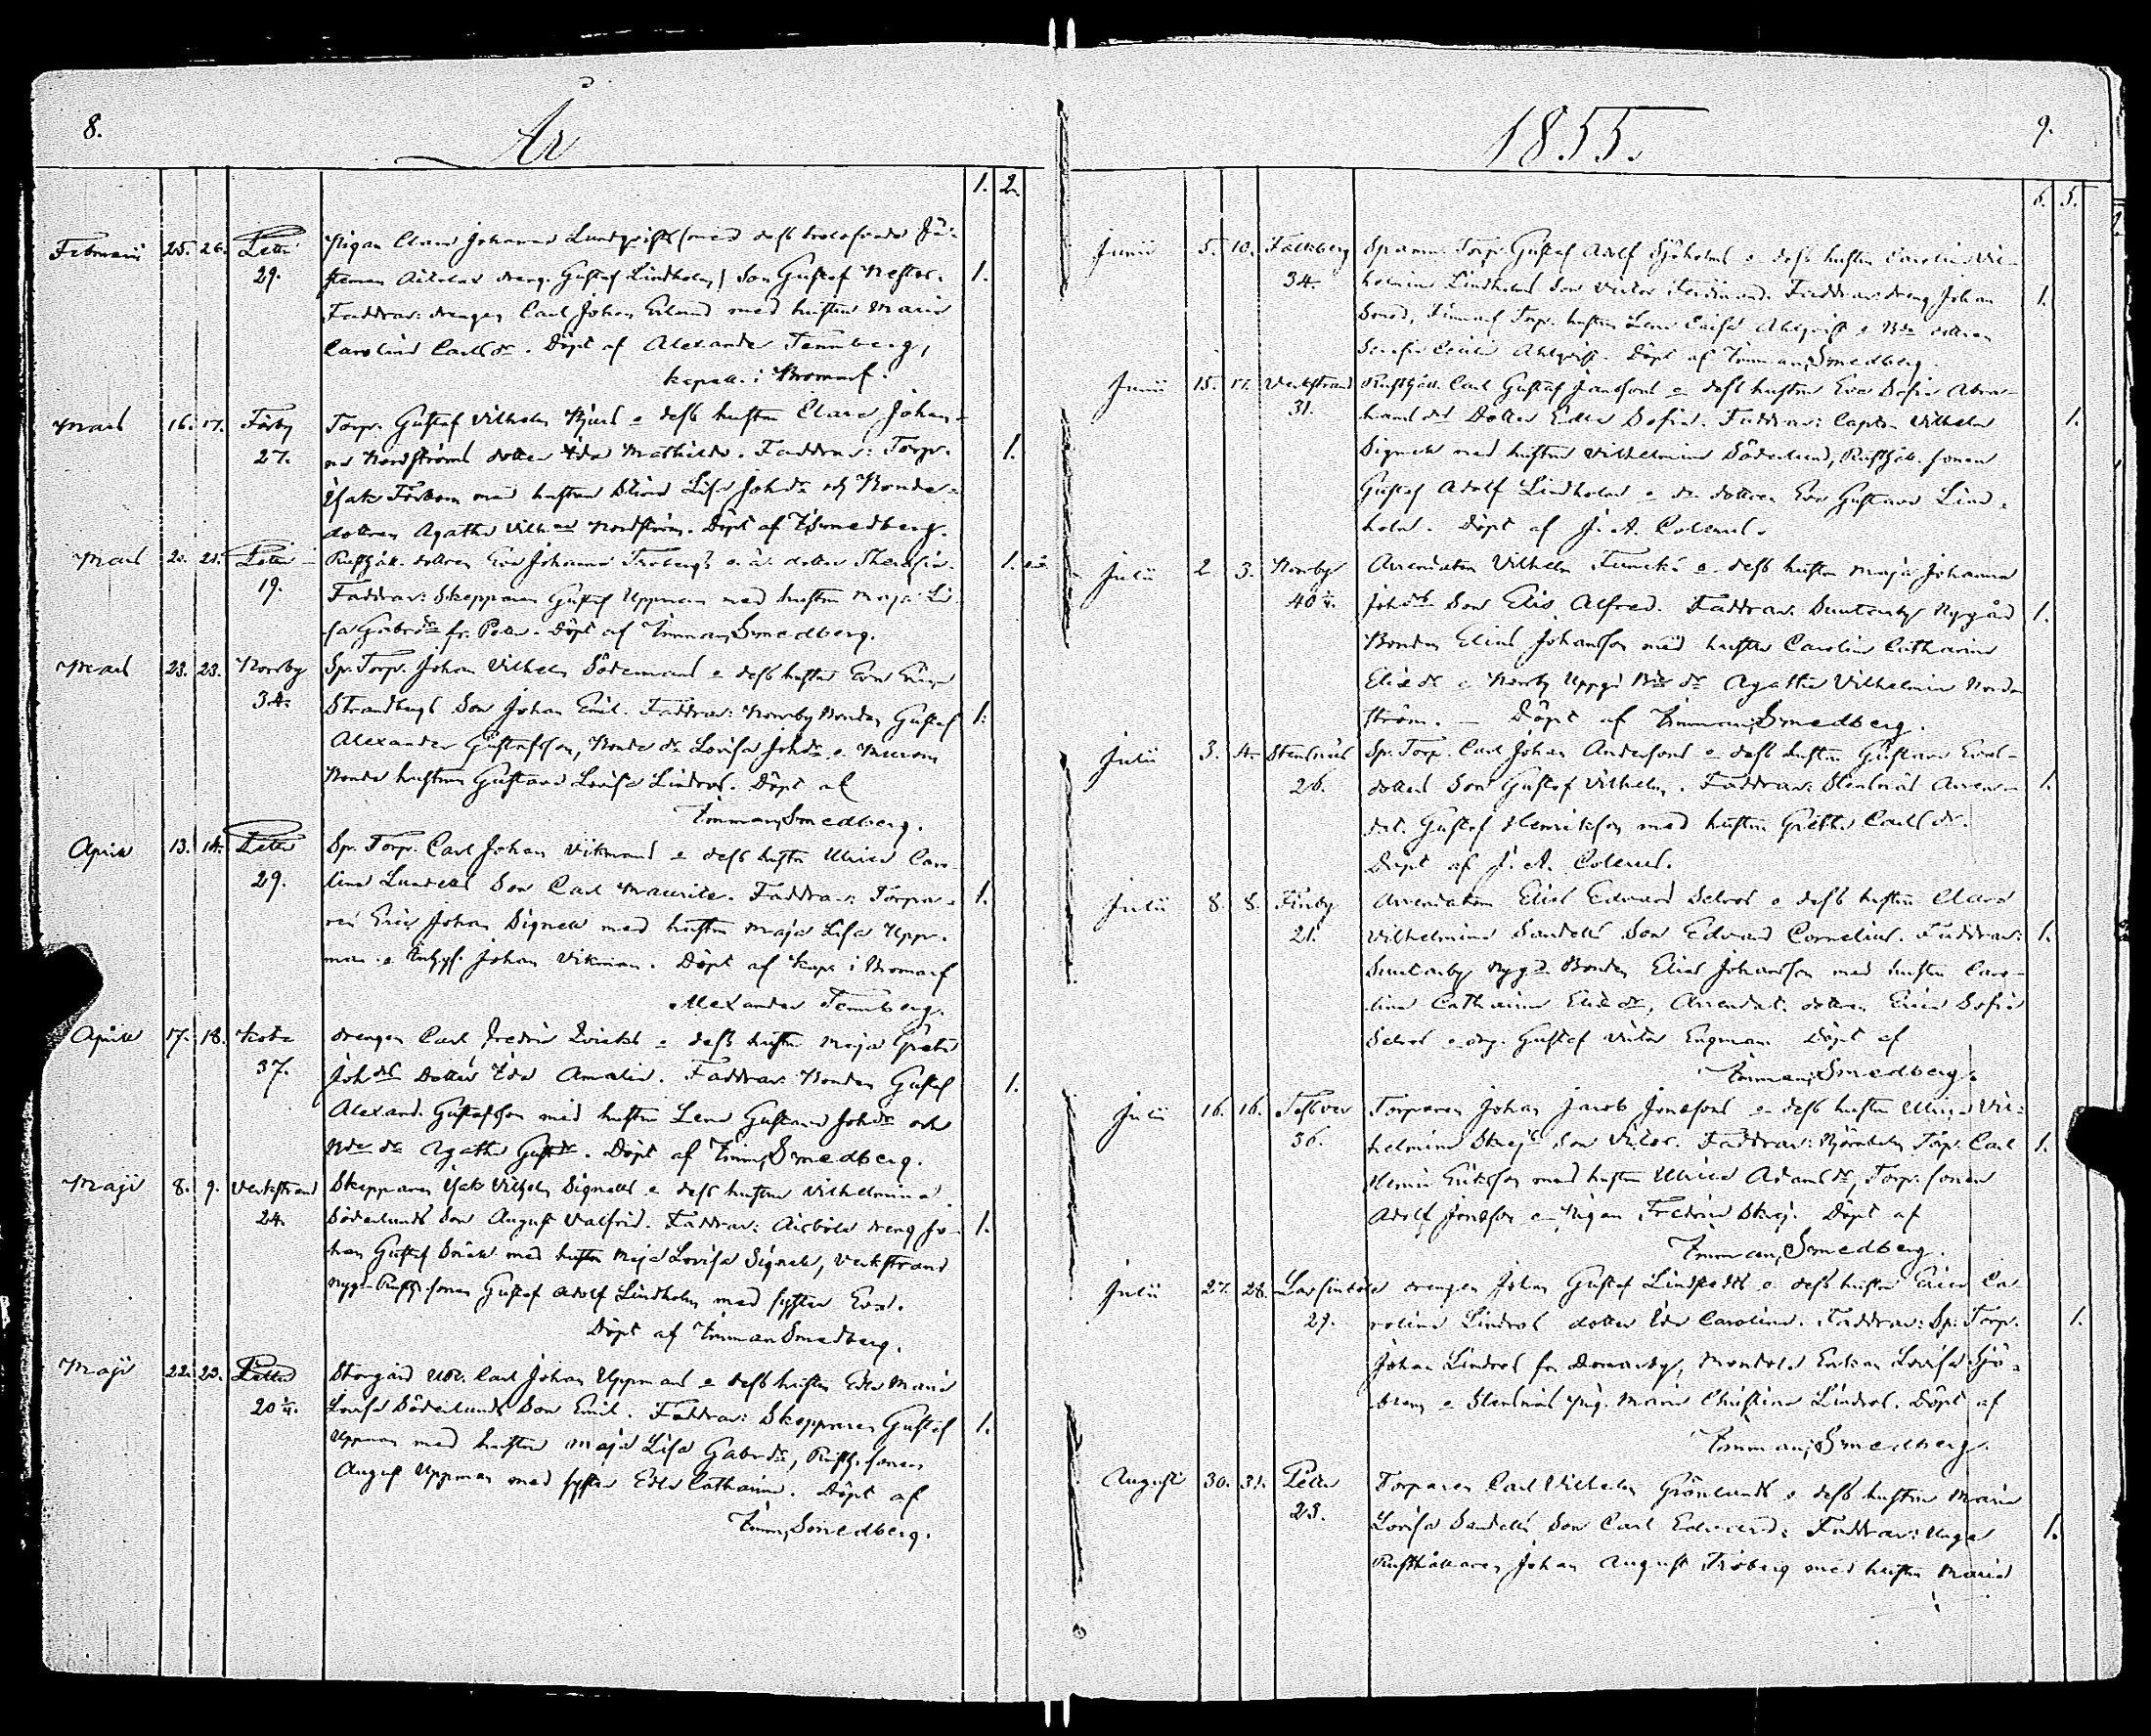 8.
År
1. 2.
Februarii 25. 26. Petter Pigan Clara Johanna Lundqvists (med dess trolofvade Fä-
29. steman drang. Gustaf Lindholm) Son Gustaf Nestor. 1.
Faddrar: drengen Carl Johan Eklund med hustru Maria
Carolina Carlsdr. Döpt af Alexander Tennberg,
kapell. i Bromarf.
Mars 16. 17. Förby Torp. Gustaf Vilhelm o dess hustru Clara Johan-
27. na Nordströms dotter Ida Mathilda. Faddrar: Torpr. 1.
Isak med hustru Stina Lisa Johdr och Bonde-
dottren Agatha Vilhna Nordström. Döpt af Smedberg.
Mars 20. 21. Rusthåll. dottren Eva Johanna Frobergs o. ä. dotter 1.
19. Faddrar: Skepparen Gustaf Uppman med hustru Maja Li-
sa Gabrdr fr. Petter. Döpt af Imman. Smedberg.
Mars 23. 23. Norrby Sp. Torp. Johan Vilhelm Södermans o dess hustru Eva
34. Strandbergs Son Johan Emil. Faddrar: Norrby Bonden Gustaf 1.
Alexander Gustafsson, Bonde dr Lovisa Johdr o
Bonde hustrun Gustava Lovisa Lindros. Döpt af
Imman. Smedberg.
April 13. 14. Petter Sp. Torp. Carl Johan Vikmans o dess hustru Ulrica Caro-
29. lina Lundells Son Carl Mauritz. Faddrar: Torpa- 1.
ren Eric Johan Signell med hustru Maja Lisa Upp-
man o Johan Vikman. Döpt af Kapl. i Bromarf
Alexander Tennberg.
April 17. 18. drengen Carl Fredric o dess hustru Maja Greta
37. Johdrs Dotter Ida Amalia. Faddrar: Bonden Gustaf 1.
Alexand. Gustafsson med hustru Lena Gustava Johdr och
Bde dr Agatha Gustdr. Döpt af Imm. Smedberg.
Maji 8. 9. Verkstrand Skepparen Isak Vilhelm Signells o dess hustru Vilhelmina
24. Söderlunds Son August Valfrid. Faddrar: dreng Jo- 1.
han Gustaf med hustru Maja Lovisa Signell, Verkstrand
Nygd. Rusth. sonen Gustaf Adolf Lindholm med syster Eva.
Döpt af Imman Smedberg.
Maji 22. 23. Petter Storgård Carl Johan Uppmans o dess hustru Edla Maria
20 ¼. Lovisa Söderlunds Son Emil. Faddrar: Skepparen Gustaf 1.
Uppman med hustru Maja Lisa Gabrdr, Rusth. sonen
August Uppman med syster Edla Catharina. Döpt af
Imm. Smedberg.
1855.
9.
6. 5.
Junii 5. 10. Falkberg Torp. Gustaf Adolf Sjöholms o dess hustru Carolina Vil-
34. helmina Lindholms Son Victor Ferdinand. Faddrar: dreng Johan 1.
Torp. hustru Lena Caisa Ahlqvist o dottren
Cecilia Ahlqvist. Döpt af Imman. Smedberg.
Junii 15. 17. Verkstrand Rusthåll. Carl Gustaf Janssons o dess hustru Eva Sofia Abra-
31. hams dr Dotter Edla Sofia. Faddrar: Capten Vilhelm 1.
Signell med hustru Vilhelmina Söderlund, Rusthåll. sonen
Gustaf Adolf Lindholm o dottren Eva Gustava Lind-
holm. Döpt af J. A. Colérus.
Julii 2. 3. Norrby Arrendatorn Vilhelm Funcks o dess hustru Maja Johanna
40 ¼. Johdrs Son Elis Alfred. Faddrar: Nygård 1.
Bonden Elias Johansson med hustru Carolina Catharina
Eliedr o Norrby Uppg. Agatha Vilhelmina Nord-
ström. — Döpt af Imman. Smedberg.
Julii 3. 4. Stensnäs Sp. Torp. Carl Johan Anderssons o dess hustru Gustava
26. dotters Son Gustaf Vilhelm. Faddrar: Stensnäs Arren- 1.
dat. Gustaf Henriksson med hustru Greta Carlsdr.
Döpt af J. A. Colérus.
Julii 8. 8. Finby Arrendatorn Elias Edvard Selros o dess hustru Clara
21. Vilhelmina Sandells Son Edvard Cornelius. Faddrar: 1.
Nygd Bonden Elias Johansson med hustru Caro-
lina Catharina Eliedr, Arrendat. dottren Erica Sofia
Selros o yng. Gustaf Victor Engman. Döpt af
Imman. Smedberg.
Julii 16. 16. Torparen Johan Jacob Jonssons o dess hustru Ulrica Vil-
36. helmina Skrejs Son Victor. Faddrar: Björnholm Torp. Carl 1.
Henric Eriksson med hustru Ulrica Adamsdr, Torp. sonen
Adolf Jonsson o Pigan Fredrica Skrej. Döpt af
Imman. Smedberg.
Julii 27. 28. drengen Johan Gustaf Lindstedts o dess hustru Erica Ca-
29. rolina Lindros dotter Ida Carolina. Faddrar: Sp. Torp. 1.
Johan Lindros fr. Enkan Lovisa Sjö-
o Stensnäs Pig. Maria Christina Lindros. Döpt af
Imman. Smedberg.
Augusti 30. 31. Petter Torparen Carl Vilhelm Grönlunds o dess hustru Maria
23. Lovisa Sandells Son Carl Edvard. Faddrar: Unga 1.
Rusthållaren Johan August Froberg med hustru Maria